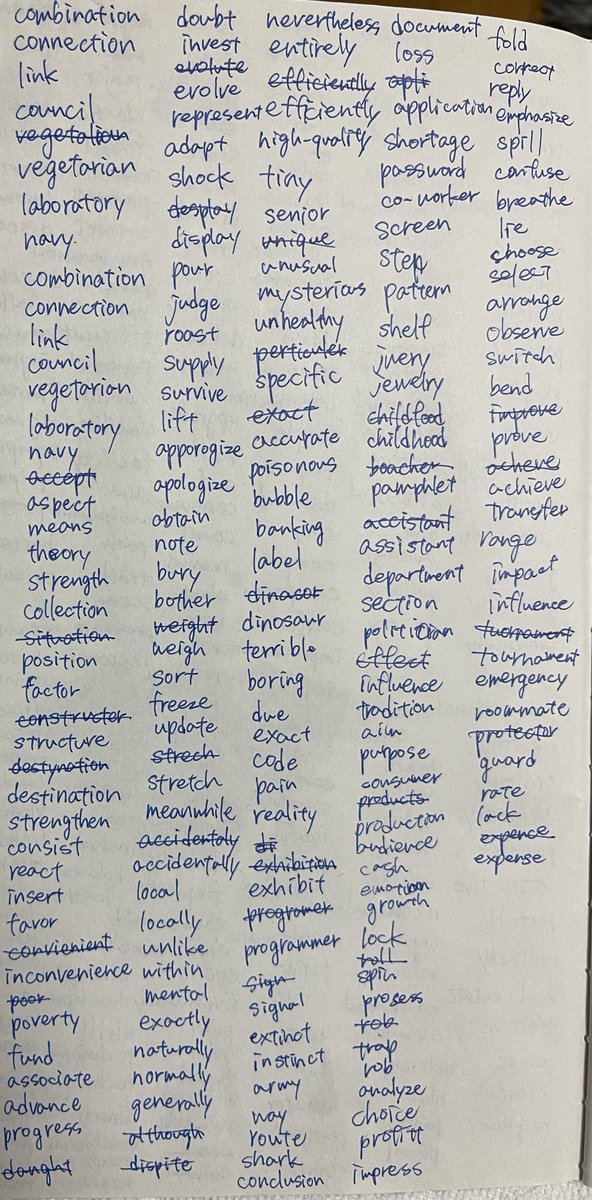 combination
connection
link
council
vegetation
vegetarian
laboratory
navy
combination
connection
link
council
vegetarian
laboratory
navy
accept
aspect
means
theory
strength
collection
situation
position
factor
constructor
structure
destynation
destination
strengthen
consist
react
insert
favor
convienient
inconvenience
poor
poverty
fund
associate
advance
progress
dought
doubt
invest
evolute
evolve
represent
adapt
shock
desplay
display
pour
judge
roast
supply
survive
lift
apporogize
apologize
obtain
note
bury
bother
weight
weigh
sort
freeze
update
strech
stretch
meanwhile
accidentaly
accidentally
local
locally
unlike
within
mental
exactly
naturally
normally
generally
although
dispite
nevertheless
entirely
efficiently
efficiently
high-quality
tiny
senior
unique
unusual
mysterious
unhealthy
perticuler
specific
exact
accurate
poisonous
bubble
banking
label
dinasor
dinosaur
terrible
boring
due
exact
code
pain
reality
di
exhibition
exhibit
programer
programmer
sign
signal
extinct
instinct
army
way
route
shark
conclusion
document
loss
apli
application
shortage
password
co-worker
screen
step
pattern
shelf
juery
jewelry
childfood
childhood
boacher
pamphlet
accistant
assistant
department
section
politician
effect
influence
tradition
aim
purpose
consumer
products
production
audience
cash
emotion
growth
lock
roll
spin
prosess
rob
trap
rob
analyze
choice
profitt
impress
fold
correct
reply
emphasize
spill
confuse
breathe
lie
choose
select
arrange
observe
switch
bend
improve
prove
acheve
achieve
transfer
range
impact
influence
tuornament
tournament
emergency
roommate
protector
guard
rate
lack
expence
expense